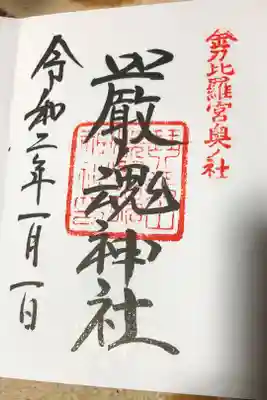 金刀比羅宮奥ノ社
嚴魂神社
令和二年一月一日